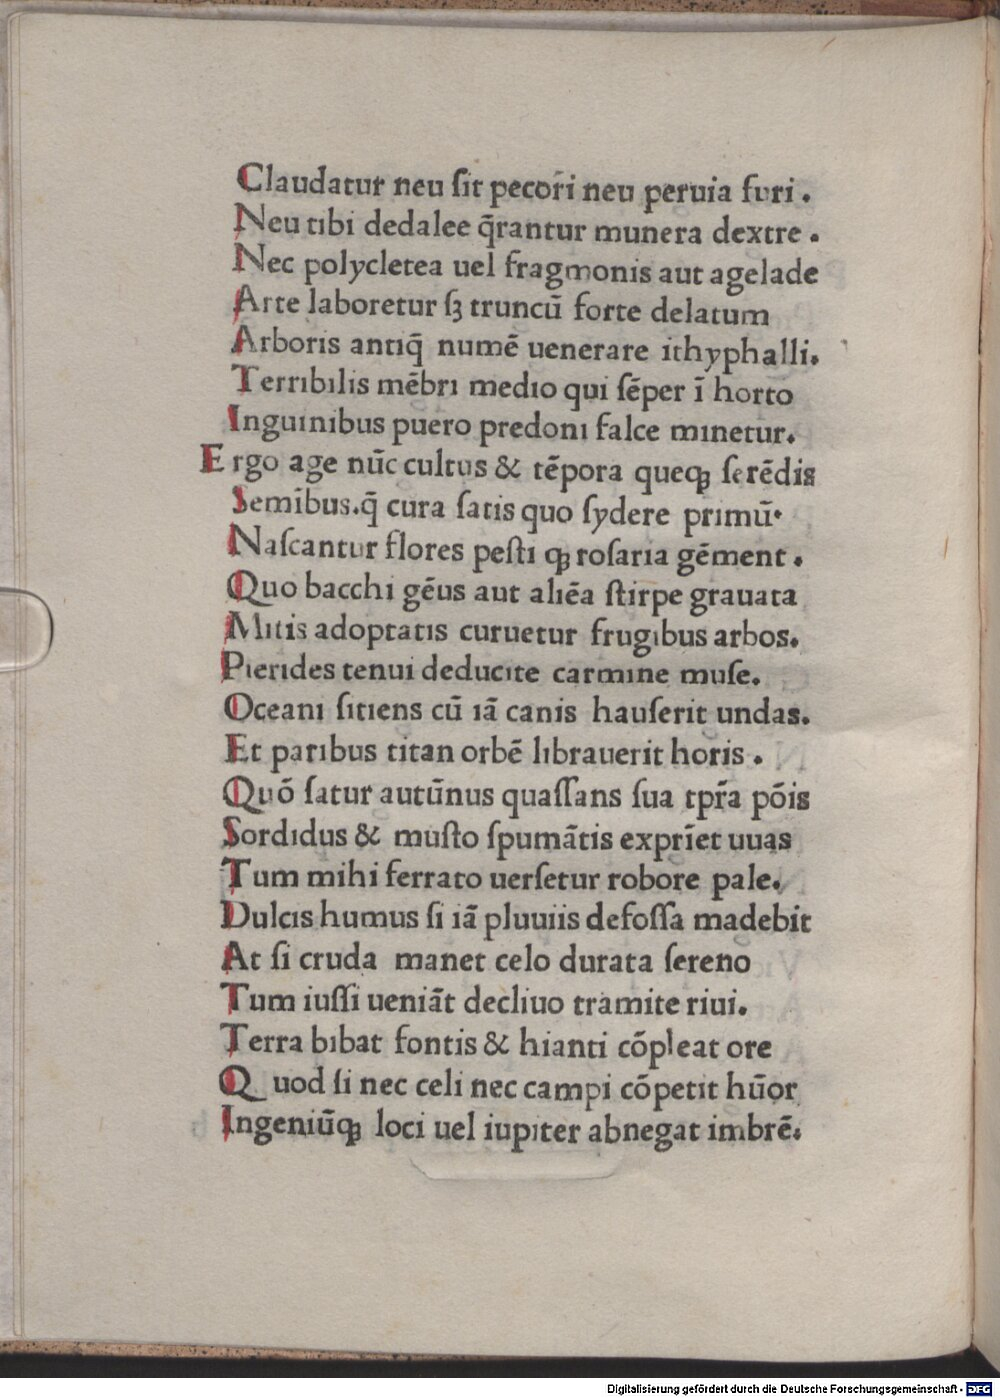 Claudatur neu ſit pecori neu peruia furi .
Neu tibi dedalee q̄rantur munera dextre .
Nec polycletea uel fragmonis aut agelade
Arte laboretur ſꝫ truncū forte delatum
Arboris antiq̄ numē uenerare ithyphalli.
Terribilis mēbri medio qui ſēper ī horto
Inguinibus puero predoni falce minetur.
Ergo age nūc cultus & tēpora queqꝫ ſerēdis
Semībus.q̄ cura ſatis quo ſydere primū.
Naſcantur flores peſti qꝫ roſaria gēment .
Quo bacchi gēus aut aliēa ſtirpe grauata
Mitis adoptatis curuetur frugibus arbos.
Pierides tenui deducite carmine muſe.
Oceani ſitiens cū iā canis hauſerit undas.
Et paribus titan orbē librauerit horis .
Quō ſatur autūnus quaſſans ſua tpr̄a pōis
Sordidus & muſto ſpumātis exprīet uuas
Tum mihi ferrato uerſetur robore pale.
Dulcis humus ſi iā pluuiis defoſſa madebit
At ſi cruda manet celo durata ſereno
Tum iuſſi ueniāt decliuo tramite riui.
Terra bibat fontis & hianti cōpleat ore
Quod ſi nec celi nec campi cōpetit hūor
Ingeniūqꝫ loci uel iupiter abnegat imbrē.
Digitalisierung gefördert durch die Deutsche Forschungsgemeinschaft - DFG